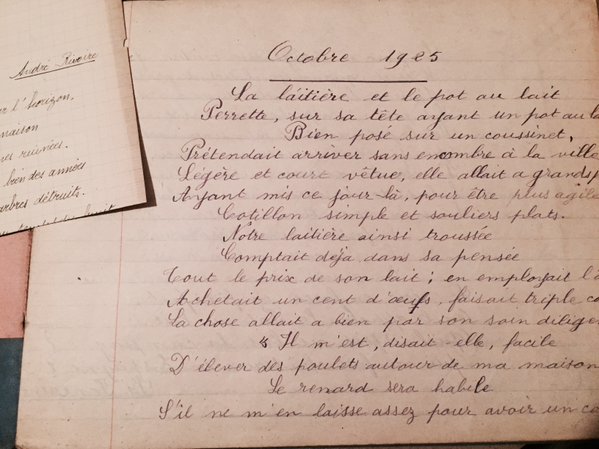 André Rivoire
l'horizon.
maison
ruinées.
bien des années
arbres détruits.
Octobre 1925
La laitière et le pot au lait
Perrette, sur sa tête ayant un pot au la
Bien posé sur un coussinet,
Prétendait arriver sans encombre à la ville
Légère et court vêtue, elle allait a grands p
Ayant mis ce jour-là, pour être plus agile
Cotillon simple et souliers plats.
Notre laitière ainsi troussée
Comptait déja dans sa pensée
Tout le prix de son lait ; en employait l'a
Achetait un cent d'œufs, faisait triple co
La chose allait a bien par son soin dilige
« Il m'est, disait-elle, facile
D'élever des poulets autour de ma maison
Le renard sera habile
S'il ne m'en laisse assez pour avoir un co